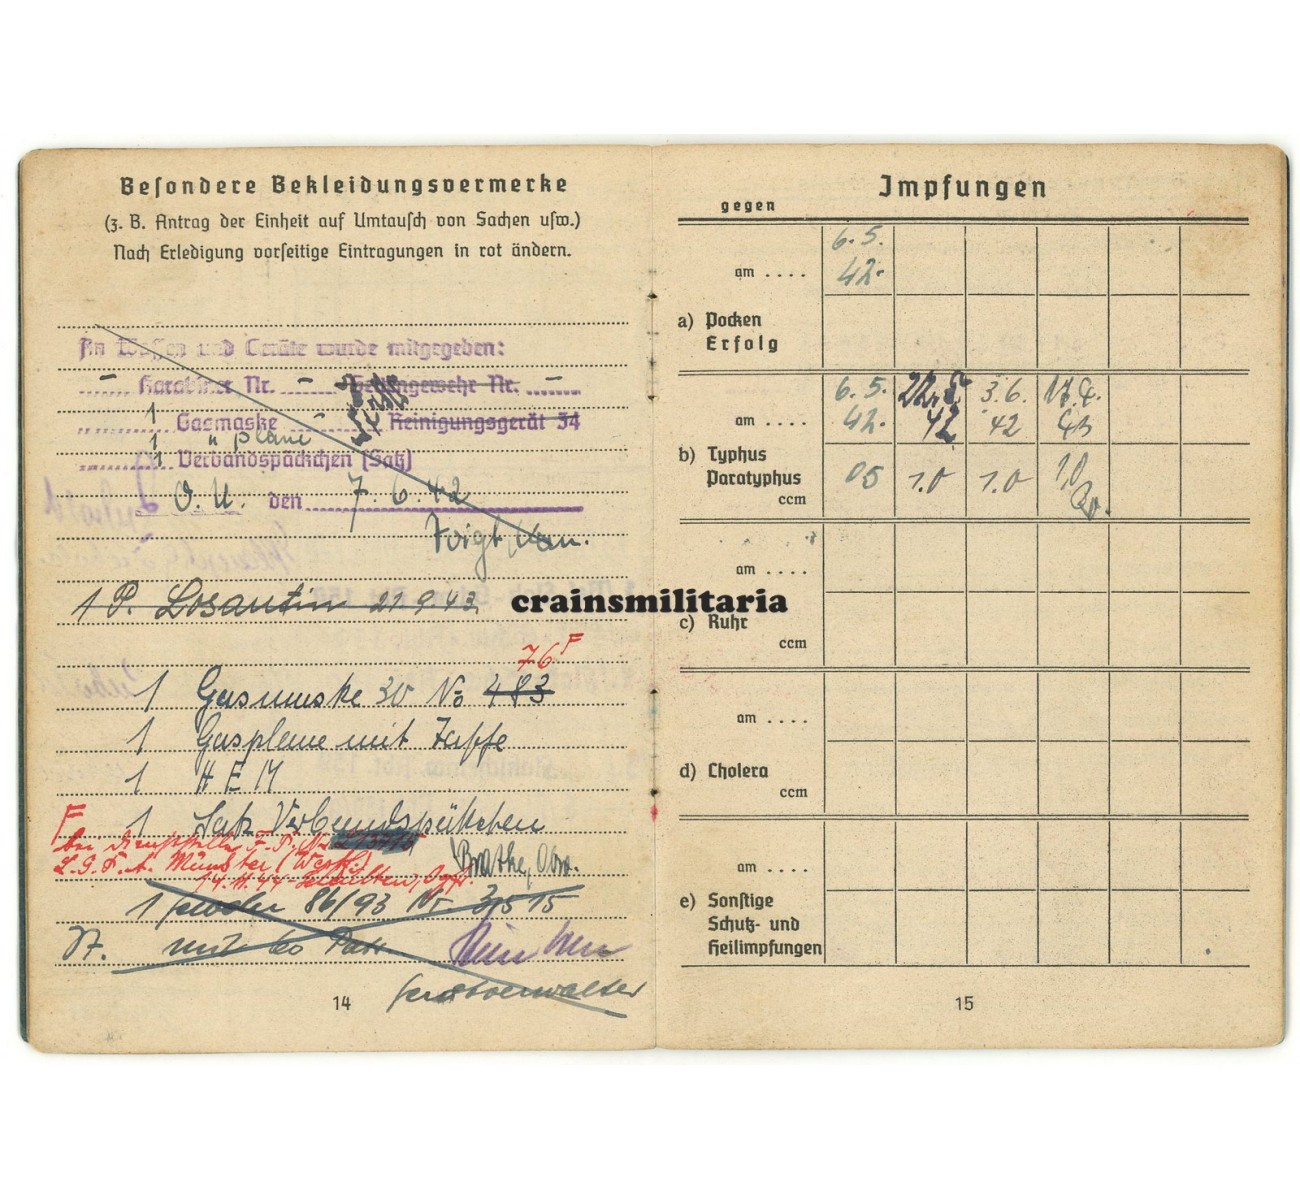 Besondere Bekleidungsvermerke
(z. B. Antrag der Einheit auf Umtausch von Sachen usw.)
Nach Erledigung vorseitige Eintragungen in rot ändern.
An Waffen und Geräte wurde mitgegeben:
– Karabiner Nr. – Seitengewehr Nr. –
1 Gasmaske – Reinigungsgerät 34
1 " plane
1 Verbandspäckchen (Satz)
O.U. den 7.6.42
Voigt
1 P. Losantin 21.9.43
76 F
1 Gasmaske 30 No 483
1 Gasplane mit
1 H E 14
F 1 Satz Verbandspäckchen
bei Dienststelle F.P. Nr.
Münster (Westf.)
14.11.44
1 86/93 Nr 3515
mit 60 Patr
Geräteverwalter
14
crainsmilitaria
Impfungen
gegen
am . . . . 6.5. 42.
a) Pocken
Erfolg
am . . . . 6.5. 42. 22.5. 42 3.6. 42
b) Typhus
Paratyphus
ccm 05 1.0 1.0 1,0
am . . . .
c) Ruhr
ccm
am . . . .
d) Cholera
ccm
am . . . .
e) Sonstige
Schutz- und
Heilimpfungen
15